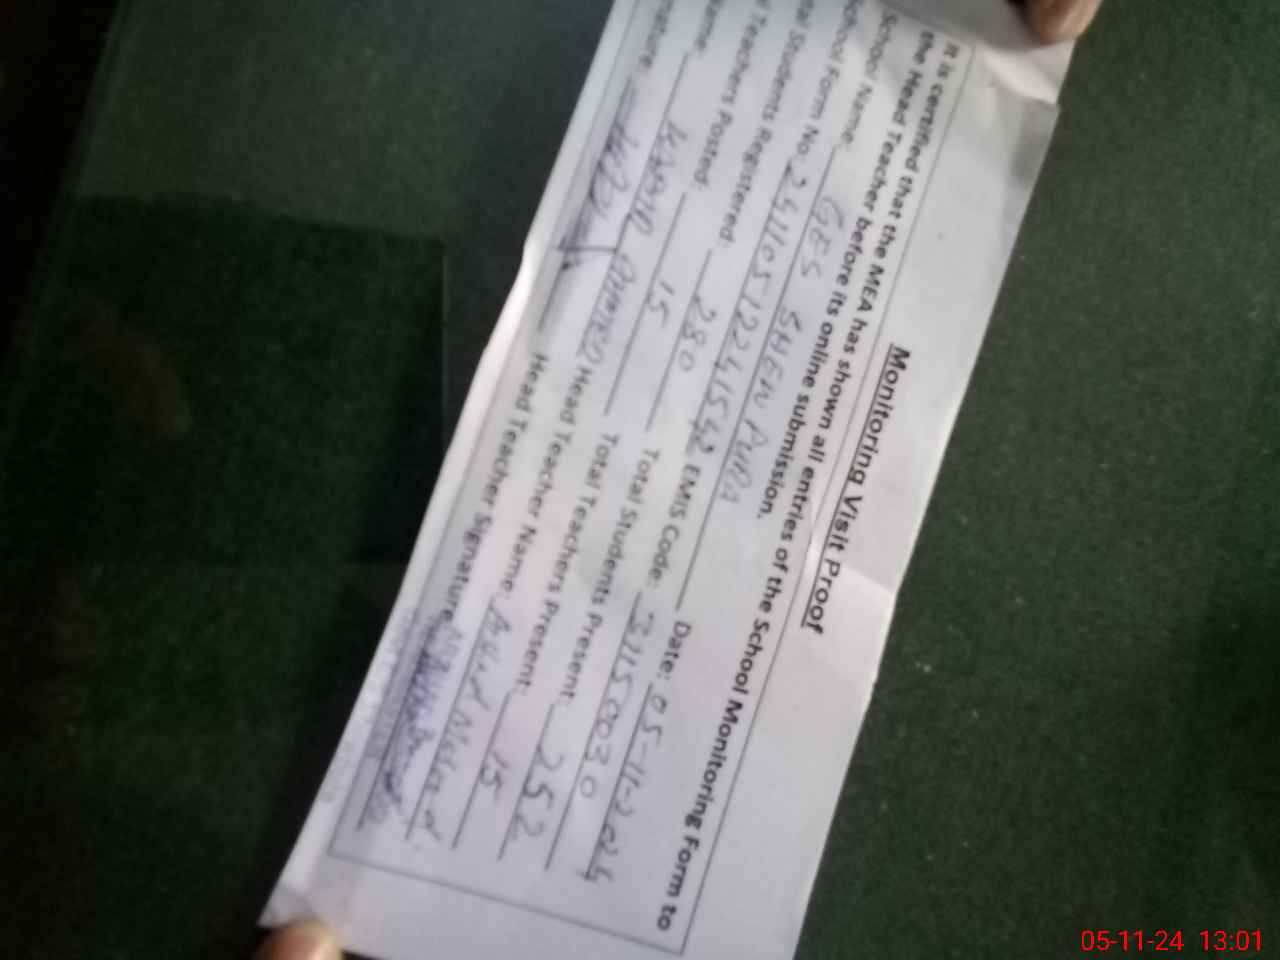 Monitoring Visit Proof
It is certified that the MEA has shown all entries of the School Monitoring Form to
the Head Teacher before its online submission.
School Name: GES SHEIN PURA Date: 05-11-2024
School Form No: 24110512241542 EMIS Code: 31150030
tal Students Registered: 280 Total Students Present: 252
l Teachers Posted: 15 Total Teachers Present: 15
ame: Head Teacher Name:
nature: Head Teacher Signature:
05-11-24 13:01